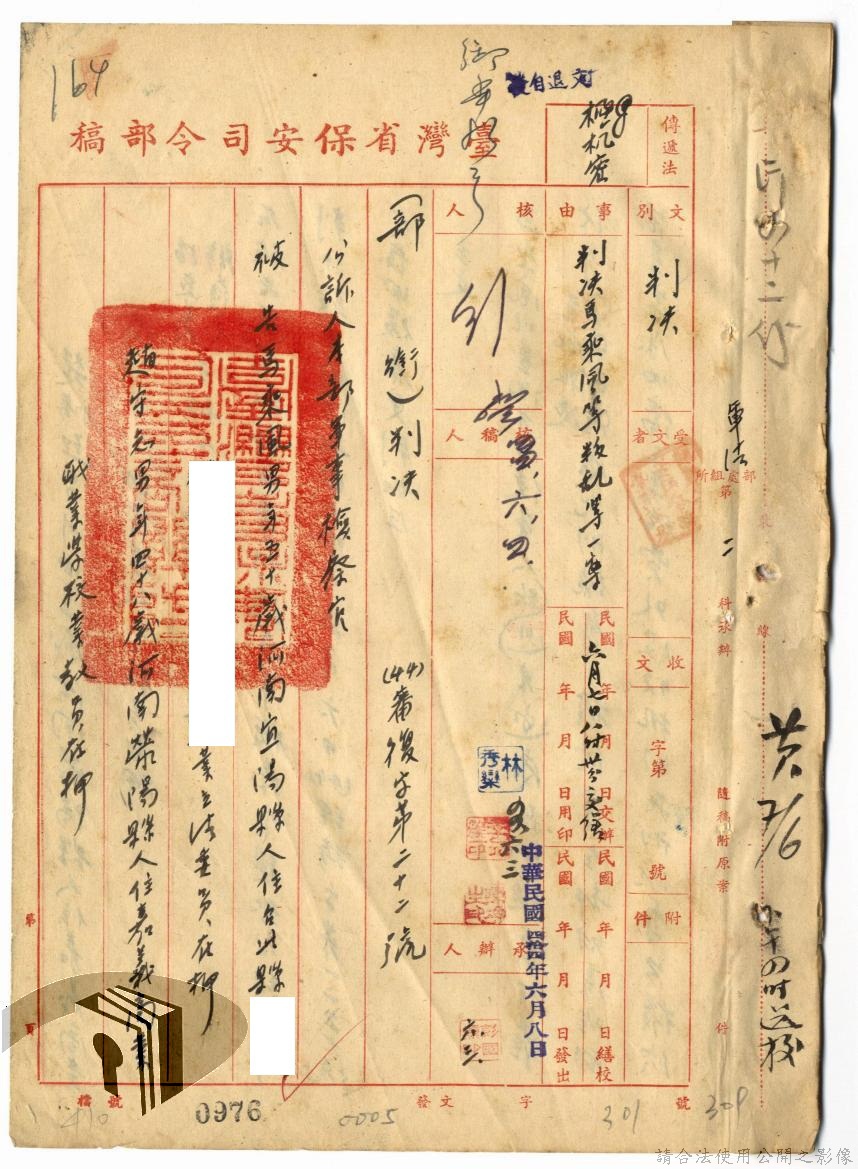 164
文退自發
臺灣省保安司令部稿
傳遞法
極机密
文別
判決
事由
判決馬乘風等叛乱等一案
核人
受文者
核稿人
四四、六、四
收文
字第
號
附件
民國 年 月 日交辦
民國 年 月 日繕校
民國 年 月 日用印
民國 年 月 日發出
六月七日
中華民國四拾四年六月八日
承辦人
林秀欒
六三
軍法
部處組所
第二科承辦
隨稿附原案
件
線
7/6
四时送校
(部銜)判決
(44)審復字第二十二號
公訴人本部軍事檢察官
被告馬乘風男年五十歲河南宜陽縣人住台北縣
業立法委員在押
趙守志男年四十八歲河南滎陽縣人住嘉義高業
職業學校業教員在押
第
頁
檔號
0976
0005
發文
字
301
號
309
請合法使用公開之影像